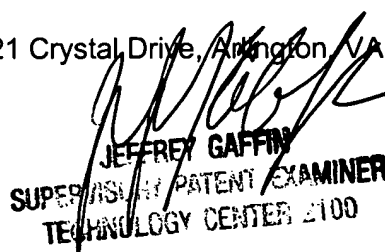 21 Crystal Drive, Arlington, VA
JEFFREY GAFFIN
SUPERVISORY PATENT EXAMINER
TECHNOLOGY CENTER 2100